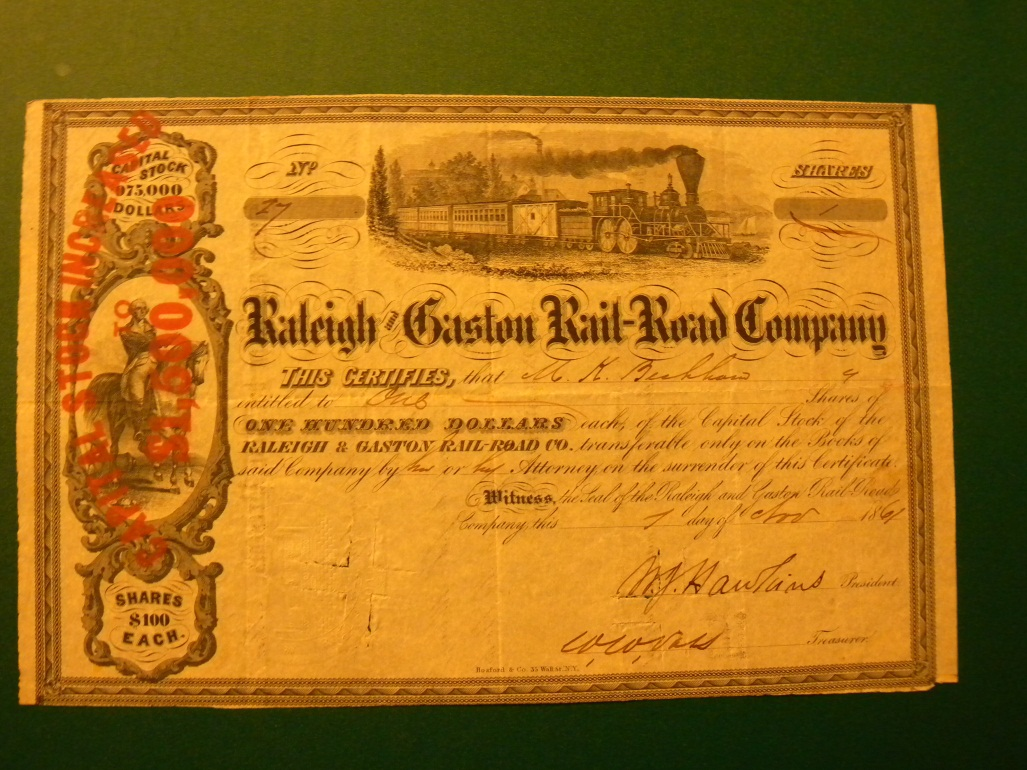 CAPITAL
STOCK
975,000
DOLLARS
CAPITAL STOCK INCREASED
TO
$1,500,000
SHARES
$100
EACH.
Nº
27
SHARES
1
Raleigh and Gaston Rail-Road Company
THIS CERTIFIES, that M. K.
entitled to One Shares of
ONE HUNDRED DOLLARS each, of the Capital Stock of the
RALEIGH & GASTON RAIL-ROAD CO. transferable only on the Books of
said Company by or Attorney on the surrender of this Certificate.
Witness, the Seal of the Raleigh and Gaston Rail-Road
Company, this 1 day of Nov 1864
W. J. Hawkins President
W. W. Vass Treasurer
35 Wall St. N.Y.